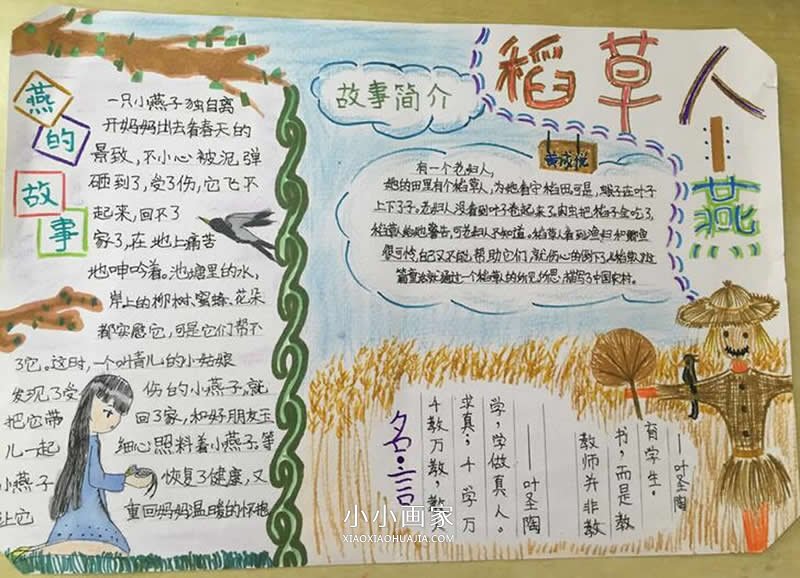 稻草人
燕
燕的故事
一只小燕子独自离
开妈妈出去看春天的
景致，不小心被泥弹
砸到了，受了伤，它飞不
起来，回不了
家了，在地上痛苦
地呻吟着。池塘里的水，
岸上的柳树、蜜蜂、花朵
都实慰它，可是它们帮不
了它。这时，一个叫青儿的小姑娘
发现了受伤的小燕子，就
把它带回了家，和好朋友玉
儿一起细心照料着小燕子，等
小燕子恢复了健康，又
让它重回妈妈温暖的怀抱
故事简介
有一个老妇人，
她的田里有个稻草人，为她看守稻田可是，蛾子在叶子
上下了子。老妇人没看到叶子卷起来了。肉虫把稻子全吃了，
稻草人给她警告，可老妇人不知道。稻草人看到渔妇和鲫鱼
很可怜，自己又不能帮助它们，就伤心的倒下了
通过一个稻草人的所见所思，描写了中国农村。
名言
千教万教，教人
求真；千学万
学，学做真人。
——叶圣陶
教师并非教
书，而是教
育学生。
——叶圣陶
小小画家
XIAOXIAOHUAJIA.COM